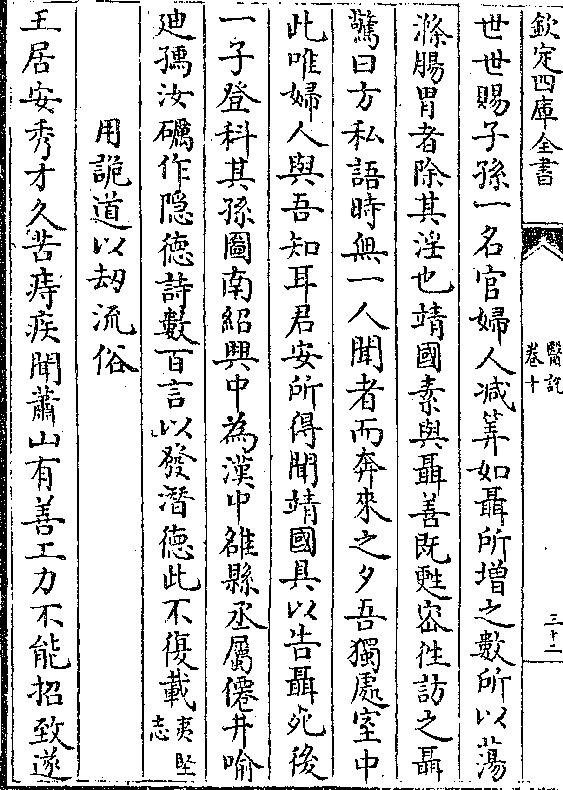 欽定四庫全書
醫說
卷十
三十二
世世賜子孫一名官婦人减筭如聶所增之數所以蕩
滌腸胃者除其淫也靖國素與聶善既甦宻徃訪之聶
驚曰方私語時無一人聞者而奔來之夕吾獨處室中
此唯婦人與吾知耳君安所得聞靖國具以告聶死後
一子登科其孫圖南紹興中為漢中雒縣丞屬僊井喻
迪孺汝礪作隠德詩數百言以發潛德此不復載夷堅志
用詭道以刼流俗
王居安秀才久苦痔疾聞蕭山有善工力不能招致遂